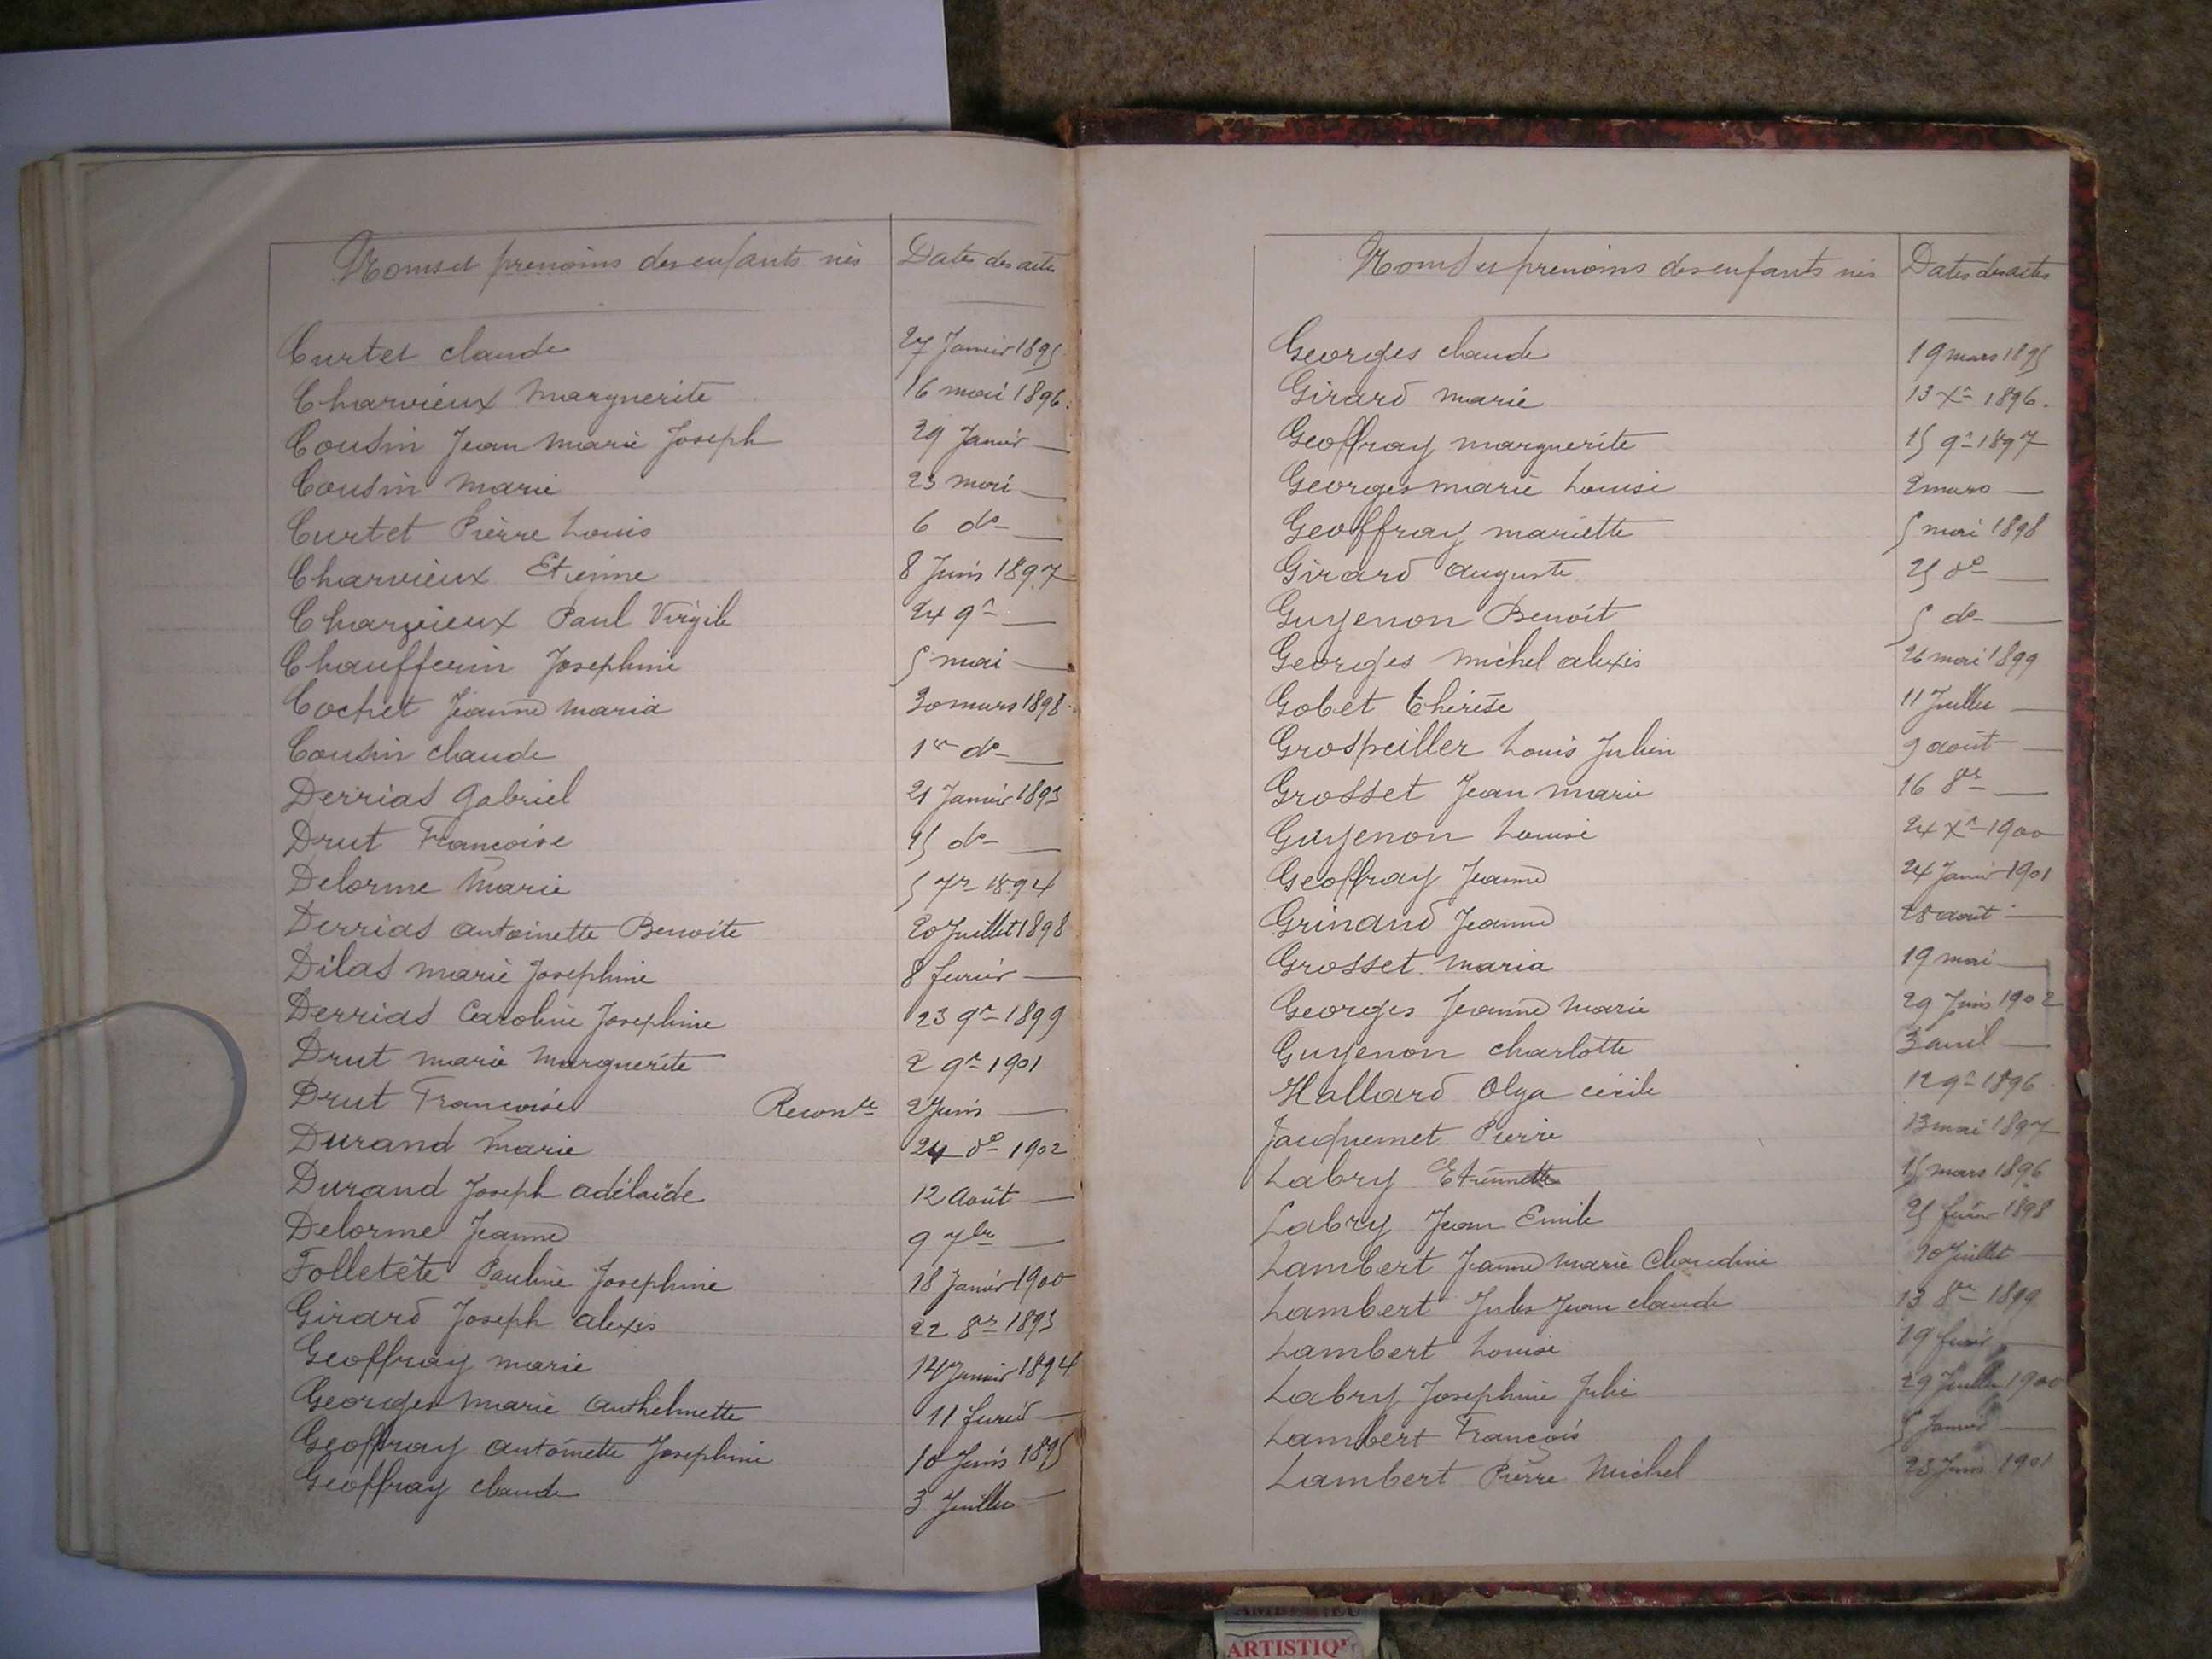 Noms et prénoms des enfants nés Dates des actes
Curtet claude 27 Janvier 1895
Charvieux Marguerite 16 mai 1896
Cousin Jean Marie Joseph 29 Janvier —
Cousin Marie 23 mai —
Curtet Pierre Louis 6 do —
Charvieux Etienne 8 Juin 1897
Charvieux Paul Virgile 24 9r —
Chaufferin Josephine 5 mai —
Cochet Jeanne Maria 30 mars 1898
Cousin claude 1er do —
Derrias Gabriel 21 Janvier 1893
Drut Françoise do —
Delorme Marie 5 7r 1894
Derrias Antoinette Benoite 20 Juillet 1898
Dilas marie Josephine 8 fevrier —
Derrias Caroline Josephine 23 9r 1899
Drut marie Marguerite 2 9r 1901
Drut Françoise Reconte 2 Juin —
Durand Marie 24 do 1902
Durand Joseph adélaïde 12 Août —
Delorme Jeanne 9 7bre —
Folletête Pauline Josephine 18 Janvier 1900
Girard Joseph alexis 22 8re 1893
Geoffray marie 14 Janvier 1894
Georges Marie Anthelmette 11 fevrier —
Geoffray antoinette Josephine 10 Juin 1895
Geoffray claude 3 Juillet —
Noms et prénoms des enfants nés Dates des actes
Georges claude 19 mars 1895
Girard marie 13 Xr 1896.
Geoffray marguerite 15 9r 1897
Georges marie Louise 2 mars —
Geoffray mariette 5 mai 1898
Girard auguste 25 do —
Guyenon Benoit 5 do —
Georges michel alexis 26 mai 1899
Gobet thérèse 11 Juillet —
Grospeiller Louis Julien 9 août —
Grosset Jean marie 16 8re —
Guyenon Louise 24 Xr 1900
Geoffray Jeanne 24 Janvier 1901
Grinand Jeanne 28 août —
Grosset maria 19 mai —
Georges Jeanne Marie 29 Juin 1902
Guyenon charlotte 3 avril —
Hallard Olga cécile 12 9r 1896
Jacquemet Pierre 13 mai 1897
Labry Etiennette 15 mars 1896
Labry Jean Emile 25 février 1898
Lambert Jeanne Marie Claudine 20 Juillet —
Lambert Jules Jean claude 13 8re 1899
Lambert Louise 19 —
Labry Josephine Julie 29 Juillet 1900
Lambert François Janvier —
Lambert Pierre Michel 23 Juin 1901
ARTISTIQ